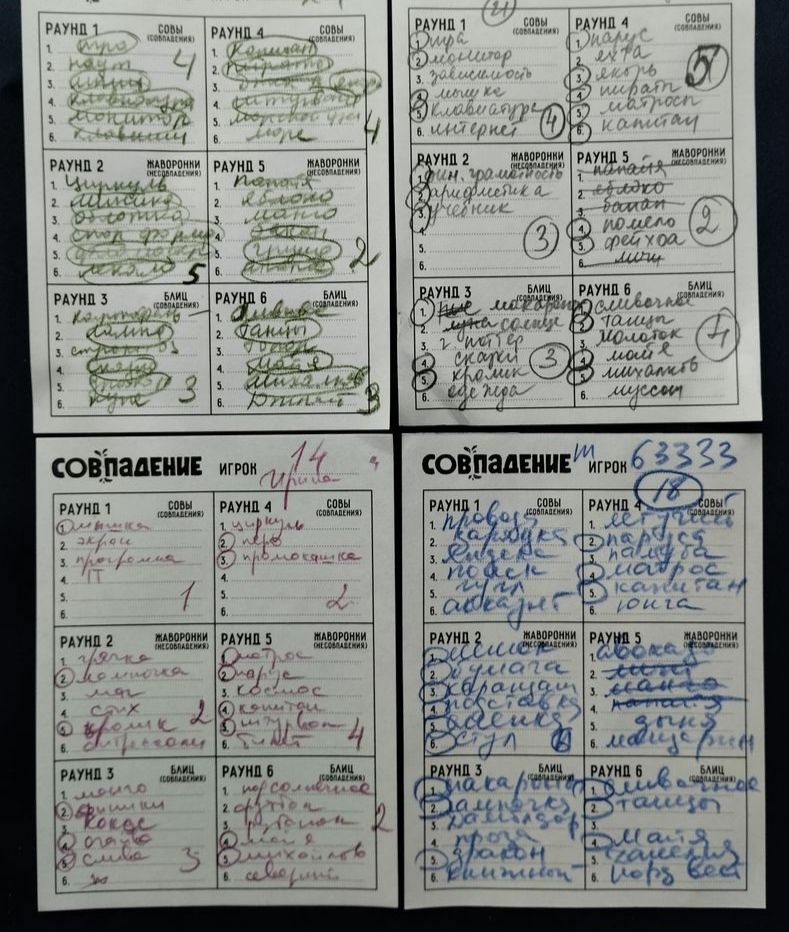 РАУНД 1 СОВЫ (СОВПАДЕНИЯ)
1. игра
2.
3. мышь
4. клавиатура
5. монитор
6. клавиши
4
РАУНД 4 СОВЫ (СОВПАДЕНИЯ)
1. капитан
2. пираты
3.
4. штурвал
5.
6. море
4
РАУНД 2 ЖАВОРОНКИ (НЕСОВПАДЕНИЯ)
1. циркуль
2. линейка
3. обложка
4. спор. форма
5.
6.
5
РАУНД 5 ЖАВОРОНКИ (НЕСОВПАДЕНИЯ)
1. папайя
2. яблоко
3. манго
4. банан
5. груша
6.
2
РАУНД 3 БЛИЦ (СОВПАДЕНИЯ)
1.
2. лампа
3.
4.
5.
6.
3
РАУНД 6 БЛИЦ (СОВПАДЕНИЯ)
1.
2. танцы
3.
4. майя
5.
6.
3
21
РАУНД 1 СОВЫ (СОВПАДЕНИЯ)
1. игра
2. монитор
3. зависимость
4. мышка
5. клавиатура
6. интернет
4
РАУНД 4 СОВЫ (СОВПАДЕНИЯ)
1. парус
2. яхта
3. якорь
4. пираты
5. матросы
6. капитан
5
РАУНД 2 ЖАВОРОНКИ (НЕСОВПАДЕНИЯ)
1. фин. грамотность
2. арифметика
3. учебник
4.
5.
6.
3
РАУНД 5 ЖАВОРОНКИ (НЕСОВПАДЕНИЯ)
1. папайя
2. яблоко
3. банан
4. помело
5. фейхоа
6. личи
2
РАУНД 3 БЛИЦ (СОВПАДЕНИЯ)
1. макароны
2. луна солнце
3. г. поттер
4. сказки
5. кролик
6. одежда
3
РАУНД 6 БЛИЦ (СОВПАДЕНИЯ)
1. сливочное
2. танцы
3. молоток
4. майя
5. михалков
6. муссон
4
СОВПАДЕНИЕ ИГРОК 14
Ирина
РАУНД 1 СОВЫ (СОВПАДЕНИЯ)
1. мышка
2. экран
3. программа
4. IT
5.
6.
1
РАУНД 4 СОВЫ (СОВПАДЕНИЯ)
1. циркуль
2. перо
3. промокашка
4.
5.
6.
2
РАУНД 2 ЖАВОРОНКИ (НЕСОВПАДЕНИЯ)
1. гречка
2. лампочка
3. маг
4. стих
5. кролик
6. антресоли
2
РАУНД 5 ЖАВОРОНКИ (НЕСОВПАДЕНИЯ)
1. матрос
2. парус
3. космос
4. капитан
5. штурвал
6. билет
4
РАУНД 3 БЛИЦ (СОВПАДЕНИЯ)
1. манго
2. финики
3. кокос
4.
5. слива
6.
3
РАУНД 6 БЛИЦ (СОВПАДЕНИЯ)
1. подсолнечное
2. футбол
3.
4. майя
5. михалков
6. северный
2
СОВПАДЕНИЕ ИГРОК 63333
18
РАУНД 1 СОВЫ (СОВПАДЕНИЯ)
1. провода
2.
3.
4. поиск
5. гугл
6. аккаунт
РАУНД 4 СОВЫ (СОВПАДЕНИЯ)
1. летучий
2. паруса
3. палуба
4. матрос
5. капитан
6. юнга
РАУНД 2 ЖАВОРОНКИ (НЕСОВПАДЕНИЯ)
1.
2. бумага
3. карандаш
4. подставка
5.
6. стул
6
РАУНД 5 ЖАВОРОНКИ (НЕСОВПАДЕНИЯ)
1. авокадо
2.
3. манго
4. папайя
5. дыня
6. мандарин
РАУНД 3 БЛИЦ (СОВПАДЕНИЯ)
1. макароны
2. лампочка
3.
4. проза
5. дракон
6. книжной
РАУНД 6 БЛИЦ (СОВПАДЕНИЯ)
1. сливочное
2. танцы
3.
4. Майя
5.
6. норд вест